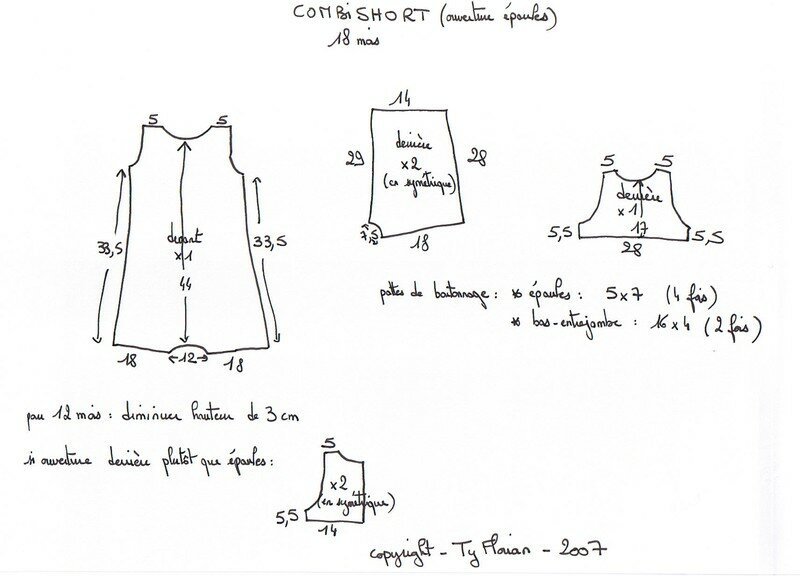 COMBISHORT (ouverture épaules)
18 mois
5 5
devant
x1
33,5 33,5
44
18 12 18
14
derrière
x2
(en symétrique)
29 28
7,5
18
5 5
derrière
x1
17
5,5 5,5
28
pattes de boutonnage : * épaules : 5x7 (4 fois)
* bas-entrejambe : 16x4 (2 fois)
pour 12 mois : diminuer hauteur de 3 cm
si ouverture derrière plutôt que épaules :
5
x2
(en symétrique)
5,5
14
copyright - Ty Florian - 2007